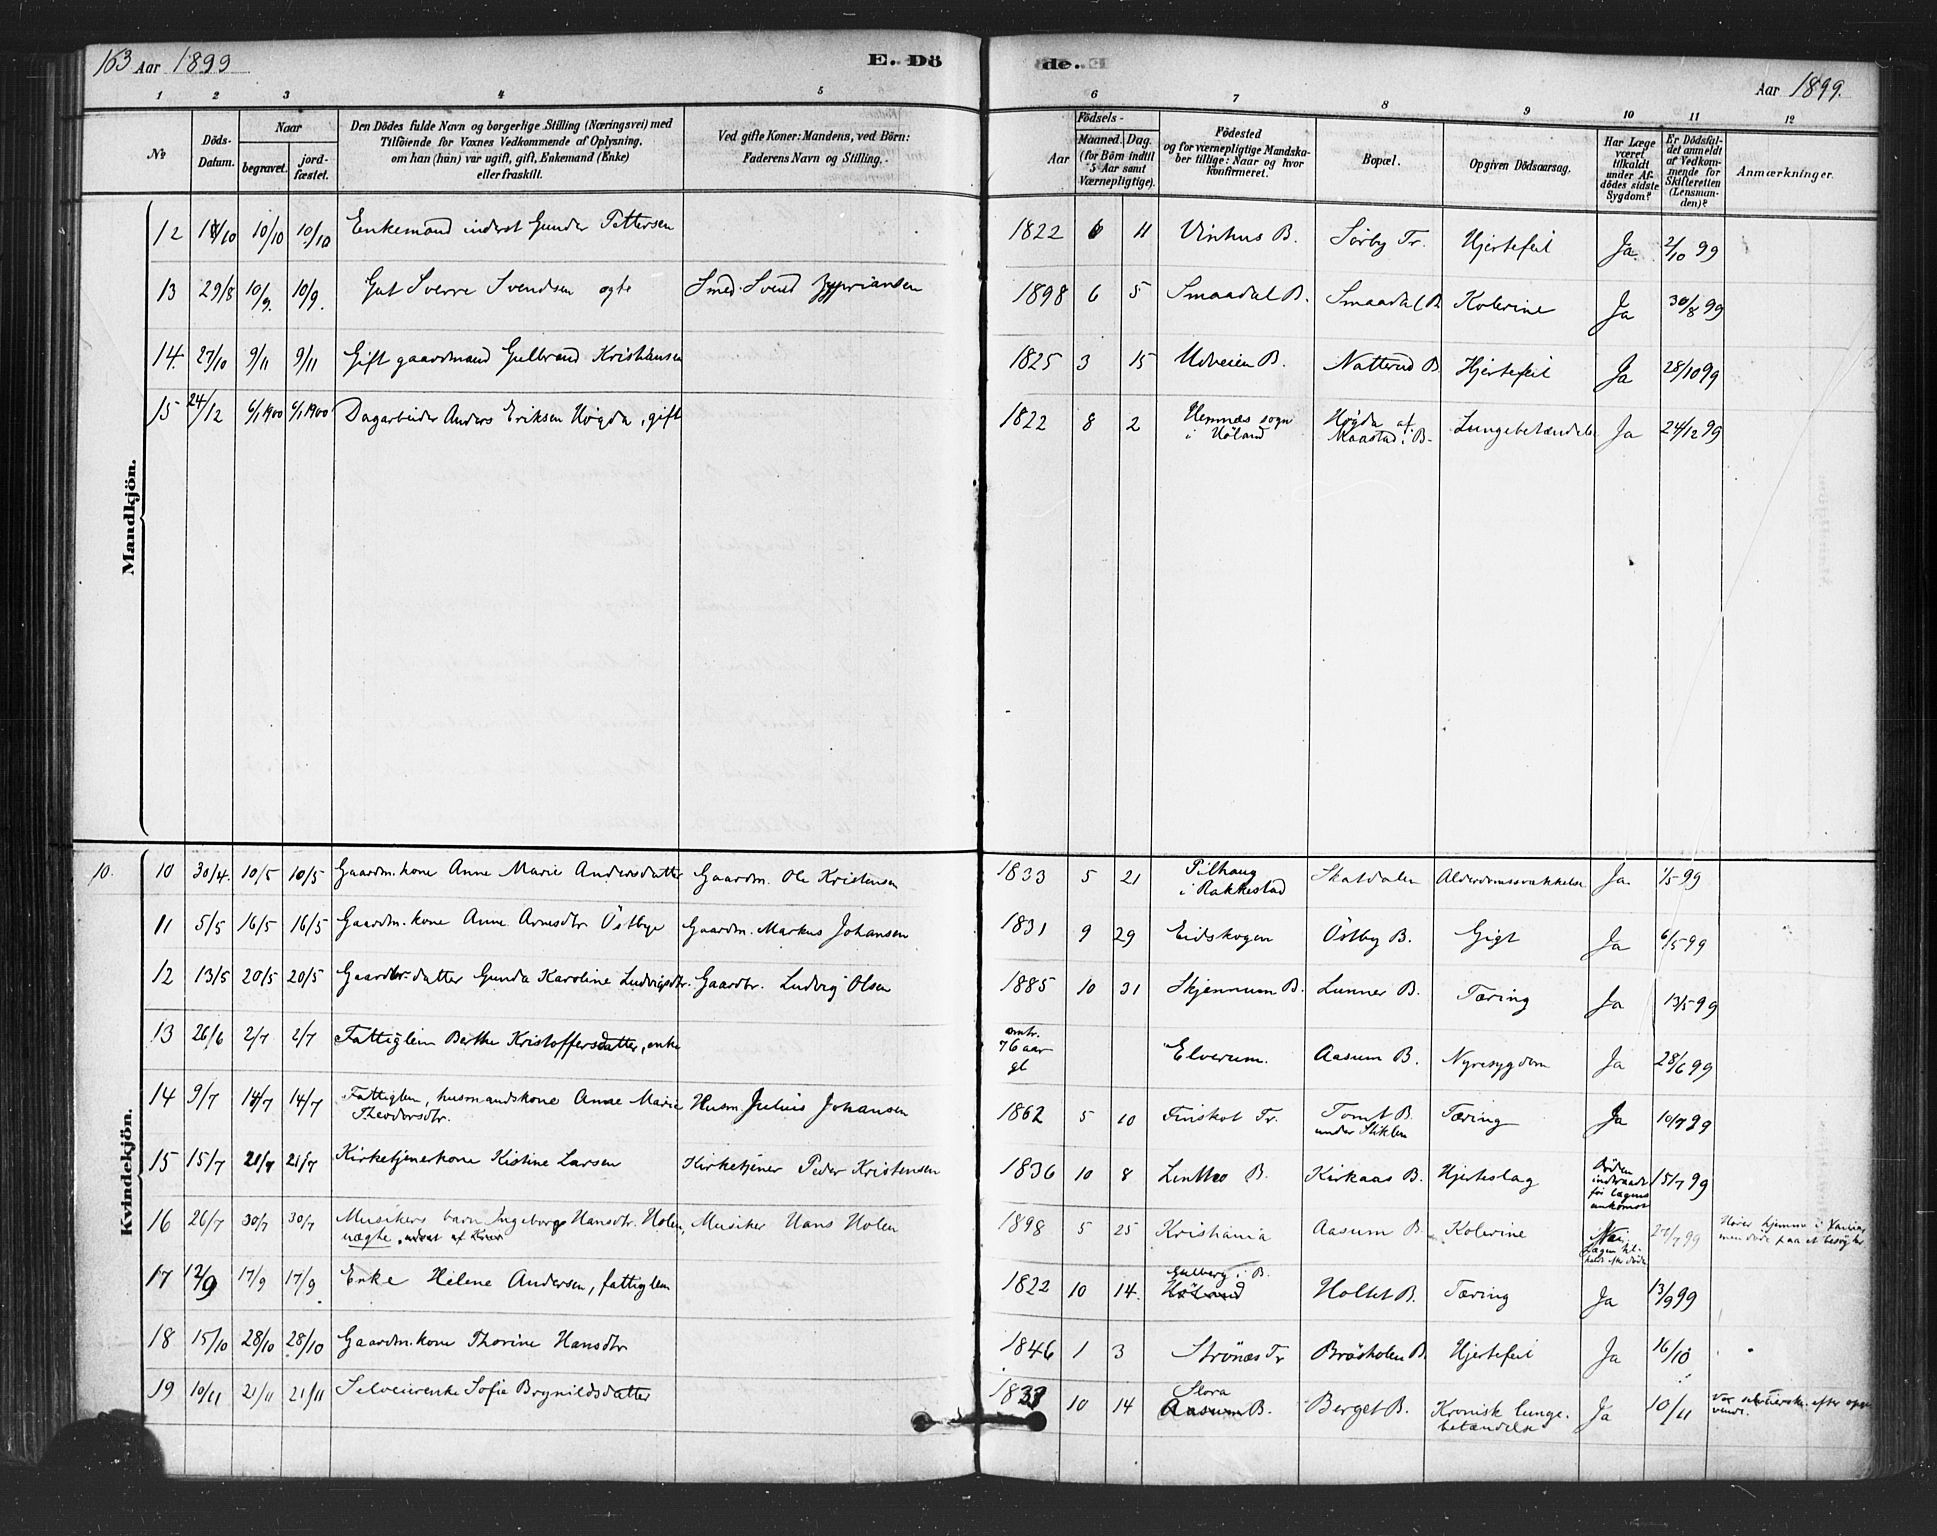 163 Aar 1899
E. Dö
de.
Aar 1899.
1 2 3 4 5 6 7 8 9 10 11 12
№
Döds-
Datum.
Naar
begravet.
jord-
fæstet.
Den Dödes fulde Navn og borgerlige Stilling (Næringsvei) med
Tilföiende for Voxnes Vedkommende af Oplysning,
om han (hun) var ugift, gift, Enkemand (Enke)
eller fraskilt.
Ved gifte Koner: Mandens, ved Börn:
Faderens Navn og Stilling.
Födsels-
Aar
Maaned. Dag.
(for Börn indtil
5 Aar samt
Værnepligtige).
Födested
og for værnepligtige Mandska-
ber tillige: Naar og hvor
konfirmeret.
Bopæl.
Opgiven Dödsaarsag.
Har Læge
været
tilkaldt
under Af-
dödes sidste
Sygdom?
Er Dödsfal-
det anmeldt
af Vedkom-
mende for
Skifteretten
(Lensman-
den)?
Anmærkninger.
Mandkjön.
12 1/10 10/10 10/10 Enkemand inderst Gunder Pettersen 1822 6 11 Vinhus B. Sørby Tr. Hjertefeil Ja 2/10 99
13 29/8 10/9. 10/9. Gut Sverre Svendsen ægte Smed Svend Zypriansen 1898 6 5 Smaadal B. Smaadal B Kolerine Ja 30/8 99
14. 27/10 9/11 9/11 Gift gaardmand Gulbrand Kristiansen 1825 3 15 Udveien B. Natterud B Hjertefeil Ja 28/10 99
15 24/12 6/1 1900 6/1 1900 Dagarbeider Anders Eriksen Høgda, gift 1822 8 2 Hemnæs sogn
i Høland Høgda af
Maastad. B. Lungebetændelse Ja 24/12 99
10.
Kvindekjön.
10 30/4. 10/5 10/5 Gaardm.kone Anne Marie Andersdatter Gaardm. Ole Kristensen 1833 5 21 Pilhaug
i Rakkestad Skatdalen Alderdomssvækkelse Ja 1/5 99
11 5/5 16/5 16/5 Gaardm.kone Anne Arnesdtr Östbye Gaardm. Markus Johansen 1831 9 29 Eidskogen Östby B. Gigt Ja 6/5 99
12 13/5 20/5 20/5 Gaardbr.datter Gunda Karoline Ludvigsdtr. Gaardbr. Ludvig Olsen 1885 10 31 Skjennum B. Lunner B. Tæring Ja 13/5 99
13 26/6 2/7 2/7 Fattiglem Berthe Kristoffersdatter, enke omtr.
76 aar
gl Elverum. Aasum B. Nyresygdom Ja 28/6 99
14 9/7 14/7 14/7 Fattiglem, husmandskone Anne Marie
Theodorsdtr. Husm. Julius Johansen 1862 5 10 Finskot Tr. Tomt B.
under Stiklen Tæring Ja 10/7 99
15 15/7 21/7 21/7 Kirketjenerkone Kistine Larsen Kirketjener Peder Kristensen 1836 10 8 Linttho B. Kirkaas B. Hjerteslag Døden
indtraadte
før lægens
ankomst 15/7 99
16 26/7 30/7 30/7 Musikers barn Ingeborg Hansdtr. Holen,
uægte Musiker Hans Holen 1898 5 25 Kristiania Aasum B. Kolerine Nei. 27/7 99
17 12/9 17/9 17/9 Enke Helene Andersen, fattiglem 1822 10 14. Gulberg i B.
Høland Holtet B. Tæring Ja 13/9 99
18 15/10 28/10 28/10 Gaardm.kone Thorine Hansdtr 1846 1 3 Strönæs Tr Bröskolen B. Hjertefeil Ja 16/10
19 10/11 21/11 21/11 Selveierenke Sofie Brynildsdatter 1833 10 14 Slora
Aasum B. Berget B. Kronisk lunge-
betændelse Ja 10/11